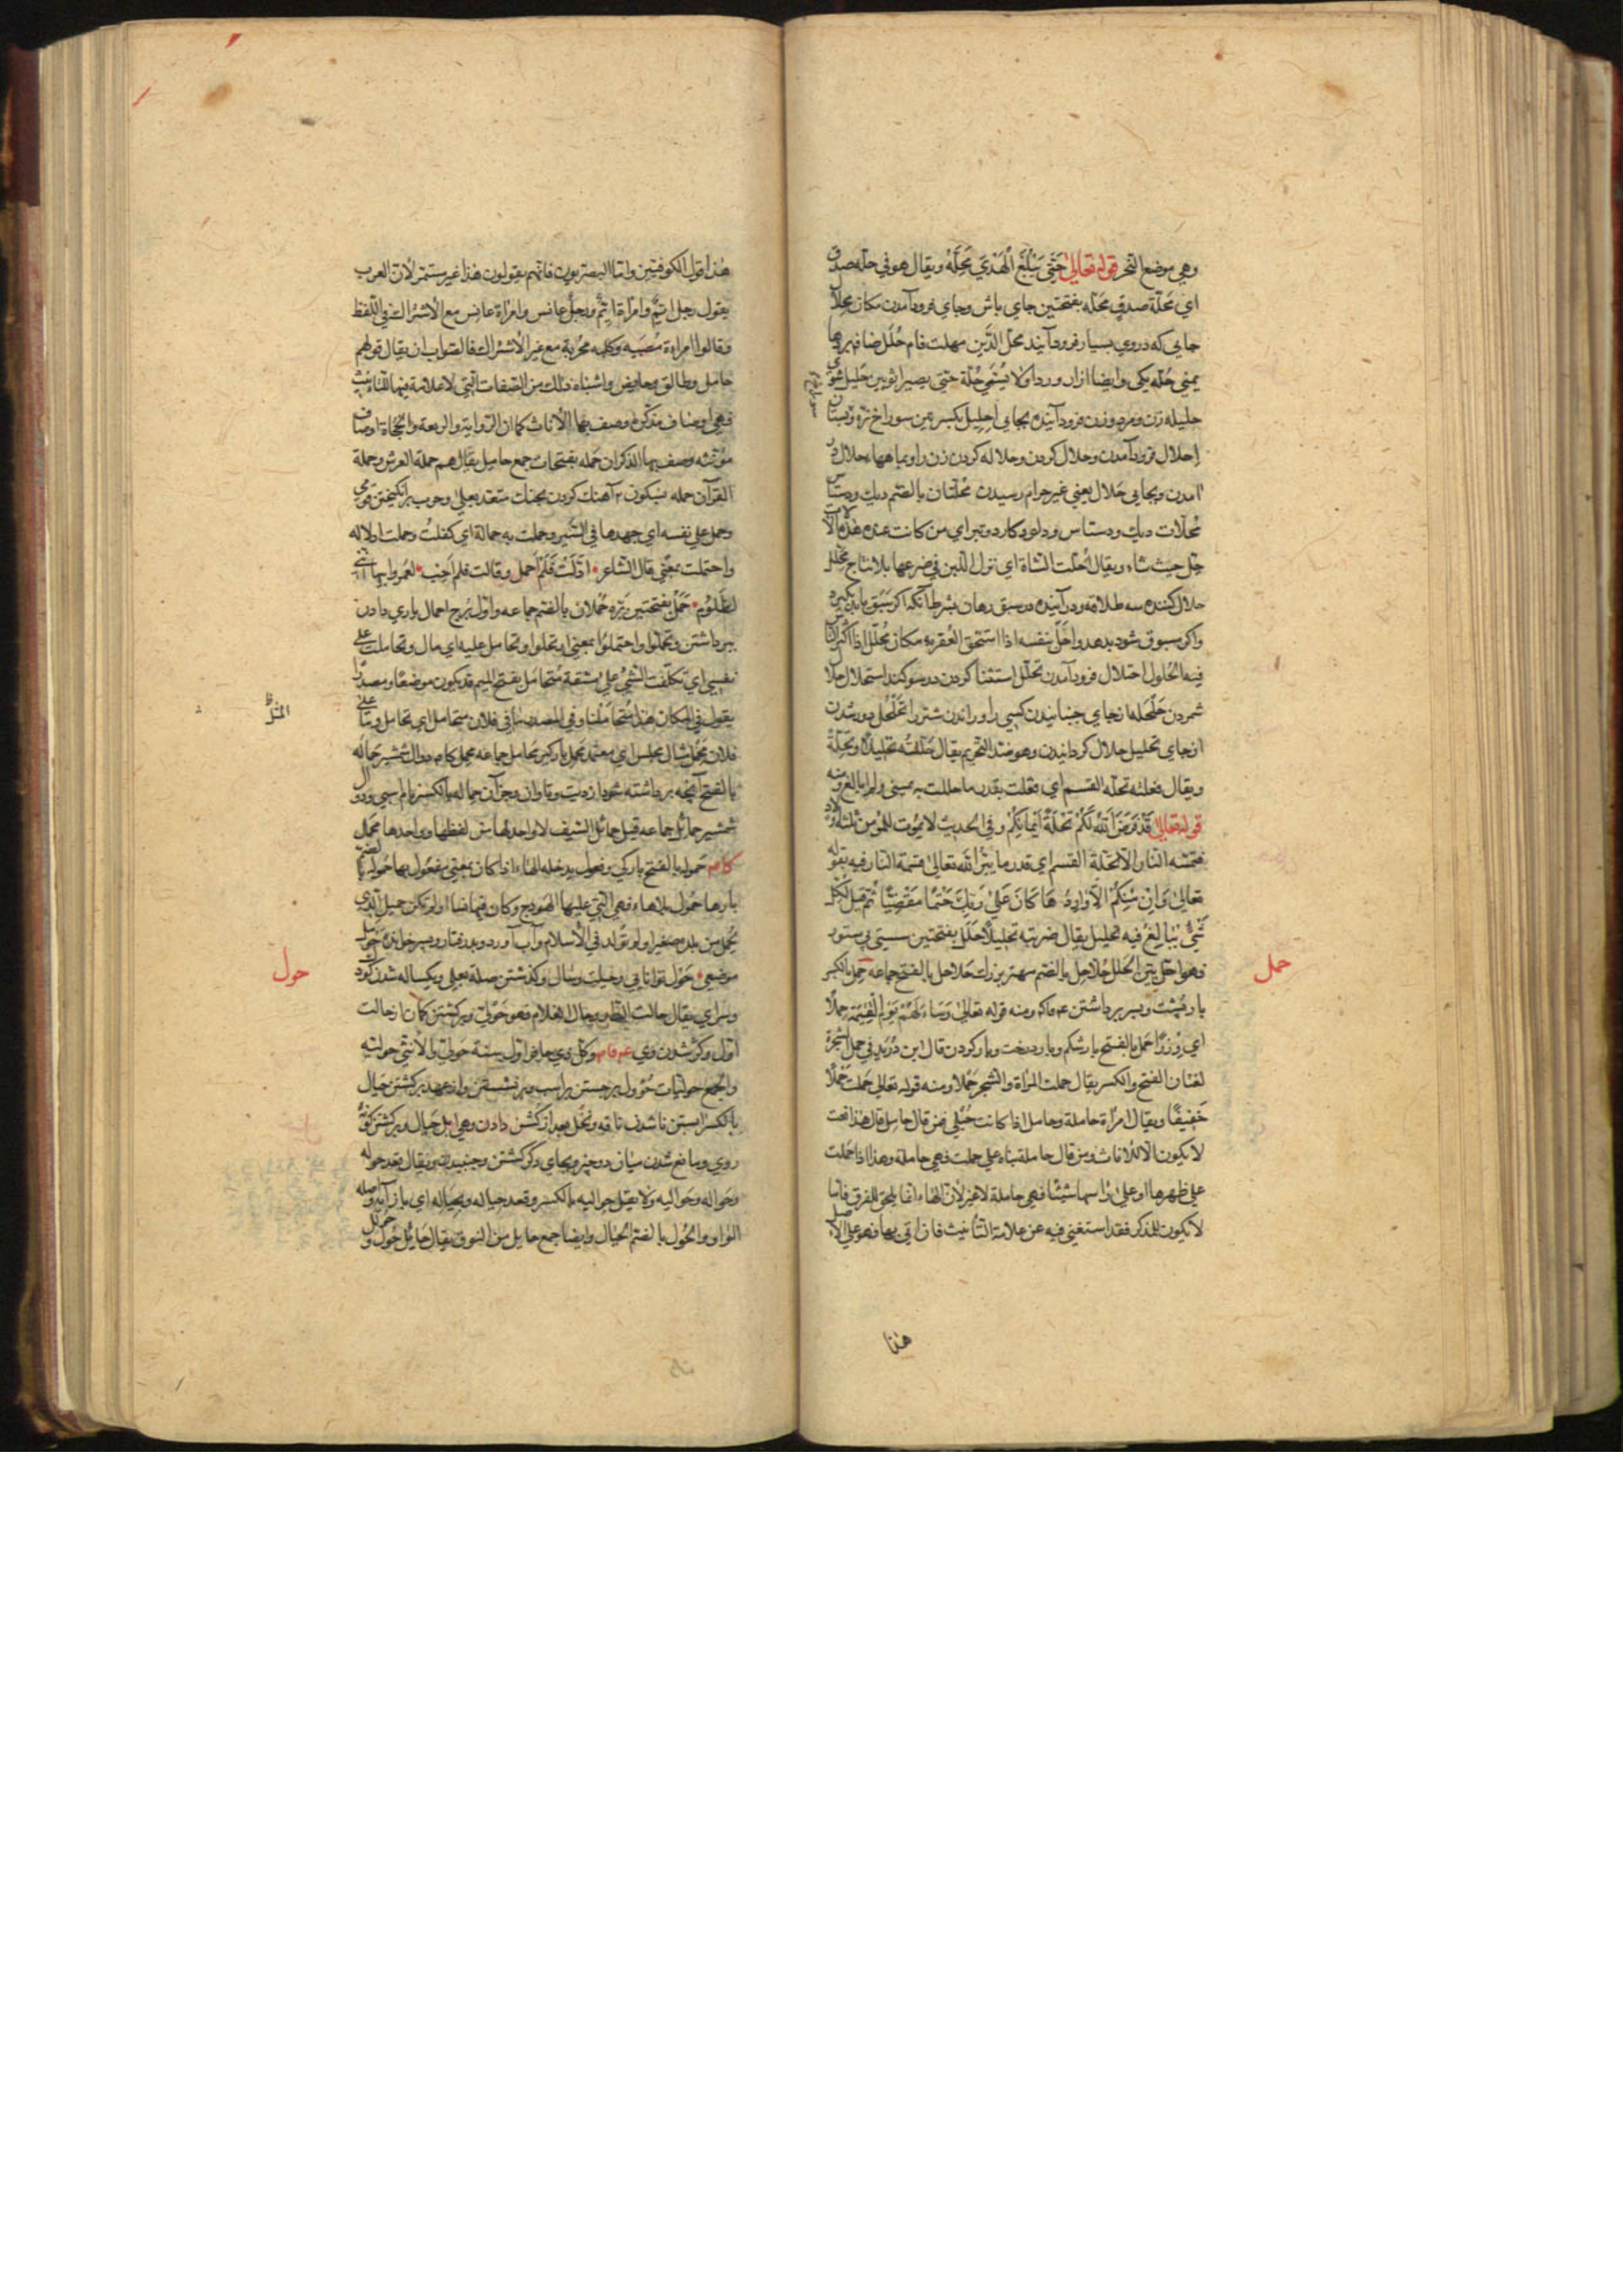 وهي موضع النحر قوله تعالى حَتّى يَبْلُغَ الْهَدْيُ مَحِلَّهُ ويقال هو في حلّه صدق
اي مَحَلّة صدق مَحَلّه بفتحتين جاي باش وجاي فرود آمدن مكان محلال
جايى كه دروي بسيار فرود آيند محل الدَّين مهلت فام حُلَل
يمني حُلّه يكى وايضا ازار وردا ولا يُسمّي حُلّة حتى يصير اثوبين حَليل شوي
حليله زن ومرد وزن فرود آينده بجايى اِحليل بكسرتين سوراخ نره وپستان
اِحلال فرود آمدن وحلال كردن وحلاله كردن زن را وبماهها حلال در
آمدن وبجايى حَلال يعني غير حرام رسيدن مُحلّتان بالضم ديك ودستاس
مُحلّات ديك ودستاس ودلو وكارد وتبر اي من كانت عنده هذه الآلات
حلّ حيث شاء ويقال اُحلّت الشاة اي نزل اللبن في ضرعها بلا نتاج محلل
حلال كننده سه طلاقه ودر آينده در سبق رهان بشرط آنكه اكر سَبَق بايد بگيرد
واكر مسبوق شود بدهد واحلّ بنفسه اذا استحق العقوبه مكان مُحلّل اذا اكثر الناس
فيه الحُلول احتلال فرود آمدن تحلّل استثنا كردن در سوكند استحلال حلال
شمردن حَلْحَله از جاي جنبانيدن كسى را وراندن شتر را تحلْحُل دور شدن
از جاي تحليل حلال كردانيدن وهو ضد التحريم يقال حَلّلتُه تحليلًا وتَحِلّةً
ويقال فعلته تحلّه القسم اي فعلت بقدر ما حللت به يميني ولم ابالغ ومنه
قوله تعالى قَدْ فَرَضَ اللهُ لَكُمْ تَحِلَّةَ اَيْمانِكُمْ وفي الحديث لا يموت للمؤمن ثلثة اولاد
فتمسّه النار الا تحلّة القسم اي قدر ما يبرّ الله تعالى قسمه النار فيه بقوله
تعالى وَاِنْ مِنْكُمْ اِلّا وارِدُها كانَ عَلى رَبِّكَ حَتْمًا مَقْضِيًّا ثُمّ قيل لكل
شَيْءٍ يُبالَغ فيه تحليل يقال ضربته تحليلًا حَلَل بفتحتين سستى پى ستور
وهو احلّ بيّن الحلل حُلاحِل بالضم مهتر بزرك حَلاحل بالفتح جماعه حِمل بالكسر
بار پُشت وبسر برداشتن ومنه قوله تعالى وَساءَ لَهُمْ يَوْمَ الْقِيٰمَةِ حِمْلًا
اي وِزْرًا حَمل بالفتح بار شكم وبار درخت وبار كردن قال ابن دُرَيد في حمل الشجرة
لغتان الفتح والكسر يقال حملت المراة والشجر حَملًا ومنه قوله تعالى حَمَلَتْ حَمْلًا
خَفيفًا ويقال امراة حاملة وحامل اذا كانت حُبلى فمن قال حامل قال هذا نعت
لا يكون الّا للاناث ومن قال حاملة بناه على حملت فهي حاملة وهذا اذا حَملت
على ظهرها او على راسها شيئًا فهي حاملة لا غير لأن الهاء انما يلحق للفرق فاما
لا يكون للمذكر فقد استغني فيه عن علامة التأنيث فان اتى بها فهو على الاصل
حمل
هذا
هذا قول الكوفيين وامّا البصريون فانهم يقولون هذا غير مستمر لأن العرب
يقول رجل ايّم وامراة ايّم ورجل عانس وامراة عانس مع الاشتراك في اللفظ
وقالوا امراءة مُصبيه وكلبه مجرية مع غير الاشتراك فالصواب ان يقال قولهم
حامل وطالق وحايض واشباه ذلك من الصفات التي لا علامة فيها للتانيث
فهي اوصاف مذكّره وصف بها الاناث كما ان الرّواية والربعة والخجاة اوصاف
مؤنثه وصف بها الذكران حَمله بفتحات جمع حامل يقال هم حملة العرش وحملة
القرآن حمله بسكون م آهنك كردن بجنك متعد بعلى وحوب برانكيختن قومى
وحمل على نفسه اي جهدها في السَّير وحملت به حمالة اي كفلتُ وحملت ادلاله
واحتملت بمعنى قال الشاعر اَدَلَّتْ فَلَمْ اَحمل وقالت فلم اُجِب لعمرو ابيها انّني
لَظَلُومُ حَمَل بفتحتين بَرّه حُملان بالضم جماعه واوّل بُرج احمال ياري دادن
ببرداشتن وتحمّلوا واحتملوا بمعنى وتحلوا وتحامل عليه اي مال وتحاملت على
نفسي اي تكلّفت الشيءُ على مشقة مُتحامَل بفتح الميم قد يكون موضعًا ومصدرًا
يقول في المكان هذا مُتحاملنا وفي المصدر ما في فلان متحامل اي تحامل ويقال على
فلان مَحمِل مثال مجلس اي معتمد محمل باركير محامل جماعه محمل كام دوال شمشير حَمالَه
بالفتح آنچه برداشته شود از ديت وتاوان وجز آن حِماله بالكسر نام اسبى ودوال
شمشير حمايل جماعه قيل حمائل السّيف لا واحد لها من لفظها وواحدها محمَل
كامر حَموله بالفتح باركي وفعول يدخله الهاء اذا كان بمعني مفعول بها حُموله بالضم
بارها حُمول بلا هاء فهي التي عليها الهَودج وكان فيها نسا اولم تكن حميل الذى
يُحمل من بلد صغيرا ولم يُولد في الاسلام وآب آورد
موضعى حَوْل توانايي وحيلت وسال وكذشتن صله بعلى ويكساله شدن كودك
وسراي يقال حالت الدار وحال الغلام فهو حَوْليّ وبركشتن كمان از حالت
اول وكژ شدن وي وكل ذي حافر اوّل سنة حَوليّ والانثى حوليّة
والجمع حوليّات حُؤول برجستن بر اسب وبرنشستن واز عهد بركشتن حِيال
بالكسر ابستن ناشدن ناقه ونخل بعد از كشن دادن وهي ابل حيال وبركشتن كونه
روى ومانع شدن ميان دو چيز وبجاي دكر كشتن وجنبيدن ويقال قعد حوله
وحَواله وحَواليه ولا يقل حواليه بالكسر وقعد حياله وبحِياله اي بازآيه واصله
الواو والحُول بالضم الحِيال وايضا جمع حايل من النوق يقال حايُل حُول و
حول